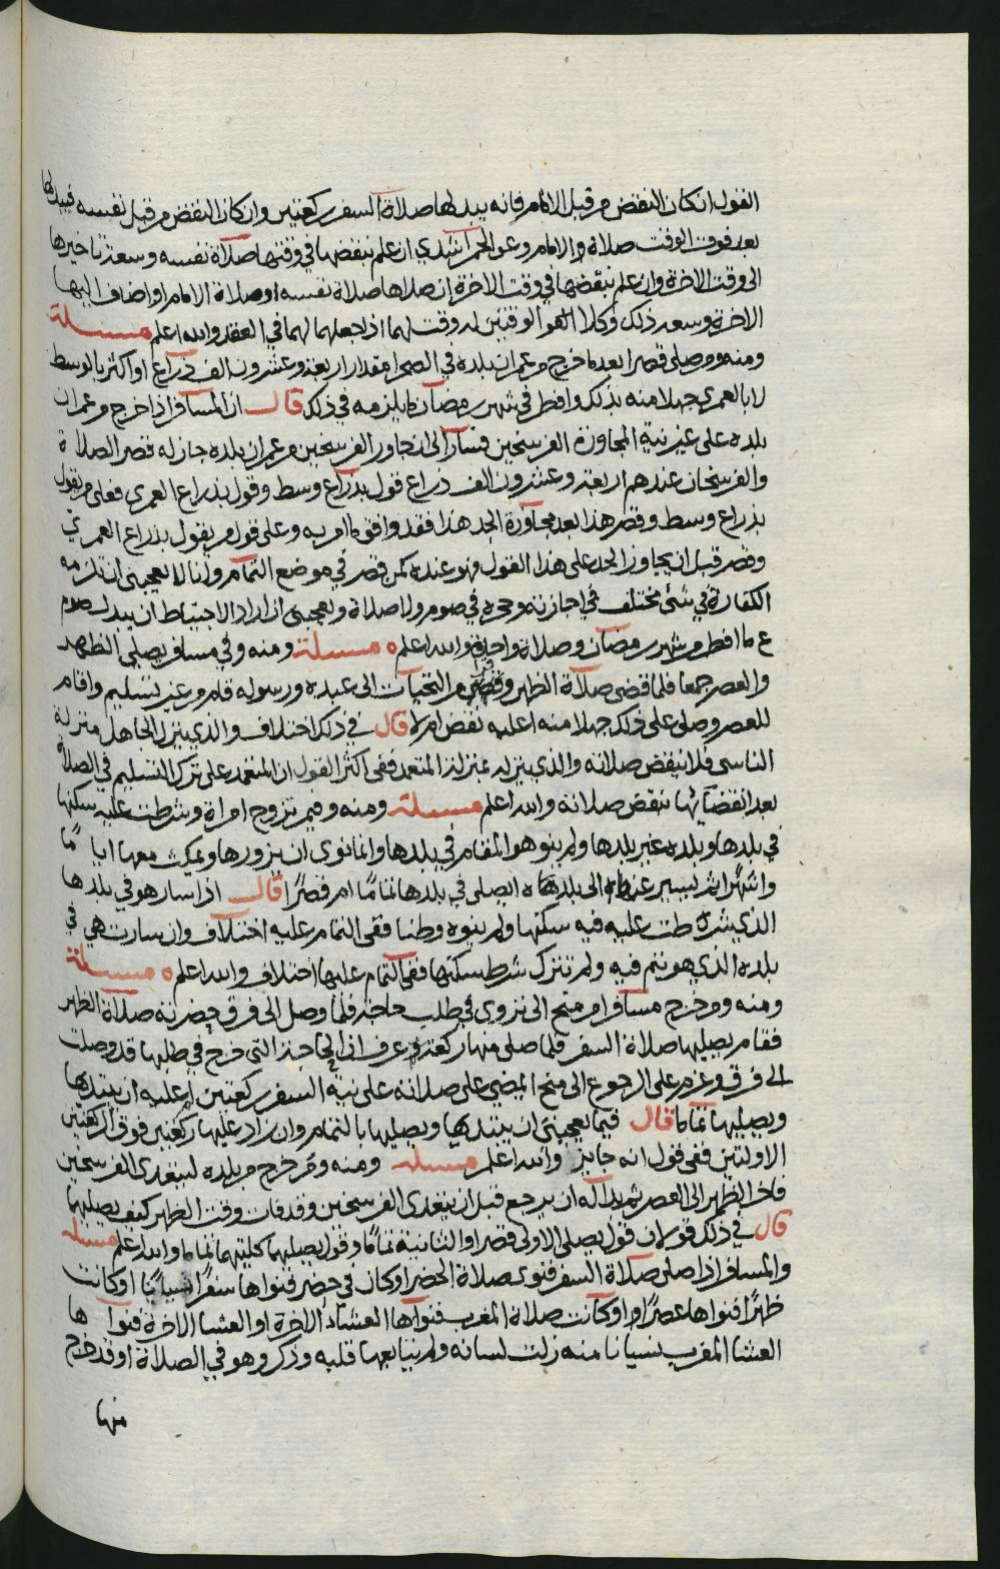 القول ان كان النقض من قبل الامام فانه يبدلها صلاة السفر ركعتين وان كان النقض من قبل نفسه فيبدلها
بعد فوت الوقت صلاة الامام وعن الحراشدي ان علم بنقضها في وقتها صلاة نفسه وسعه تاخيرها
الى وقت الاخرة وان علم بنقضها في وقت الاخرة ان صلاها صلاة نفسه او صلاة الامام او اضاف اليها
الاخرة وسعه ذلك وكلا الوقتين له وقت لهما اذا جعلهما لهما في العقد والله اعلم مسئلة
ومنه ومن صلى قصرا بعد ما خرج من عمران بلده في الصحرا مقدار اربعة وعشرون الف ذراع او اكثر بالوسط
لا بالعمري جهلا منه بذلك وافطر في شهر رمضان ما يلزمه في ذلك قال ان المسافر اذا خرج من عمران
بلده على غير نية المجاوزة الفرسخين فسار الى ان جاوز الفرسخين من عمران بلده جاز له قصر الصلاة
والفرسخان عندهم اربعة وعشرون الف ذراع قول بذراع وسط وقول بذراع العمري فعلى من يقول
بذراع وسط وقصر هذا بعد مجاوزة الحد هذا فقد وافق ما امر به وعلى قول من يقول بذراع العمري
وقصر قبل ان يجاوز الحد على هذا القول فهو عنده كمن قصر في موضع التمام وانا لا يعجبني ان تلزمه
الكفارة في شئ مختلف في اجازته وحجره في صوم ولا صلاة ويعجبني ان اراد الاحتياط ان يبدل صوم
ما افطر من شهر رمضان وصلاة واحدة والله اعلم ه مسئلة ومنه وفي مسافر يصلي الظهر
والعصر جمعا فلما قضى صلاة الظهر وقضى من التحيات الى عبده ورسوله قام من غير تسليم واقام
للعصر وصلى على ذلك جهلا منه اعليه نقض ام لا قال في ذلك اختلاف والذي ينزل الجاهل منزلة
الناسي فلا ينقض صلاته والذي ينزله بمنزلة المتعمد ففي اكثر القول ان المتعمد على ترك التسليم في الصلاة
بعد انقضائها تنقض صلاته والله اعلم مسئلة ومنه وفيمن تزوج امراة وشرطت عليه سكنها
في بلدها وبلده غير بلدها ولم ينو هو المقام في بلدها وانما نوى ان يزورها ويمكث معها اياما
واشهرا ثم يسير عنها الى بلده ه ايصلي في بلدها تماما ام قصرا قال اذا سار هو في بلدها
الذي شرطت عليه فيه سكنها ولم ينوه وطنا ففي التمام عليه اختلاف وان سارت هي في
بلده الذي هو يتم فيه ولم تترك شرط سكنها ففي التمام عليها اختلاف والله اعلم ه مسئلة
ومنه ومن خرج مسافرا من منح الى نزوى في طلب حاجة فلما وصل الى فرق حضرته صلاة الظهر
فقام يصليها صلاة السفر فلما صلى منها ركعة وعرف ان الحاجة التي خرج في طلبها قد وصلت
الى فرق وعزم على الرجوع الى منح ايمضي على صلاته على نية السفر ركعتين ام عليه ان يبتديها
ويصليها تماما قال فيما يعجبني ان يبتديها ويصليها بالتمام وان زاد عليها ركعتين فوق الركعتين
الاولتين ففي قول انه جايز والله اعلم مسئلة ومنه ومن خرج من بلده ليتعدى الفرسخين
فاخر الظهر الى العصر ثم بدا له ان يرجع قبل ان يتعدى الفرسخين وقد فات وقت الظهر كيف يصليهما
قال في ذلك قولان قول يصلي الاولى قصرا والثانية تماما وقول يصليهما كلتيهما تماما والله اعلم مسئلة
والمسافر اذا صلى صلاة السفر فنوى صلاة الحضر او كان في حضر فنواها سفرا نسيانا او كانت
ظهرا فنواها عصرا او كانت صلاة المغرب فنواها العشاء الاخرة او العشا الاخرة فنواها
العشا المغرب نسيانا منه زلت لسانه ولم يتابعها قلبه وذكر وهو في الصلاة او قد خرج
منها